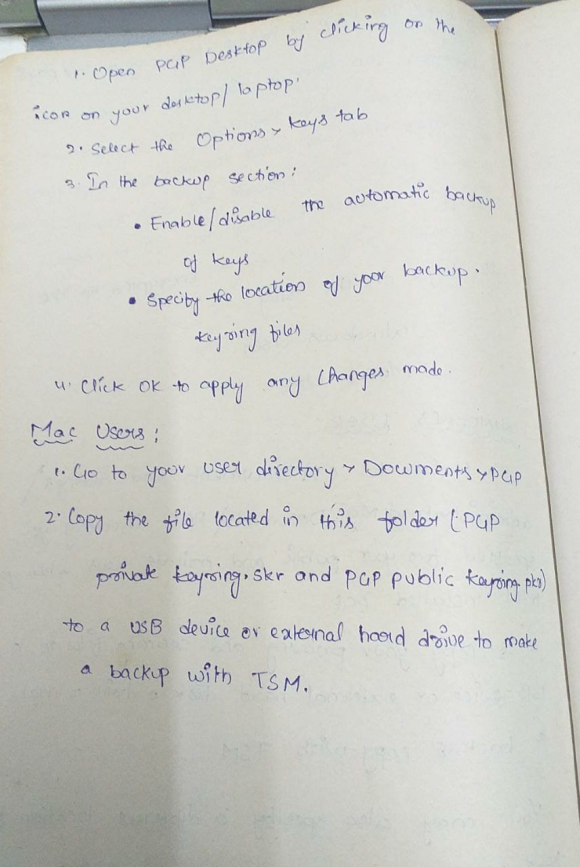 1. Open PGP Desktop by clicking on the
icon on your desktop/laptop.
2. Select the Options > keys tab
3. In the backup section:
• Enable/disable the automatic backup
of keys
• Specify the location of your backup.
keyring files
4. Click OK to apply any Changes made.
Mac Users:
1. Go to your user directory > Documents > PGP
2. Copy the file located in this folder (:PGP
private keyring.skr and PGP public keyring.pkr)
to a USB device or external hard drive to make
a backup with TSM.